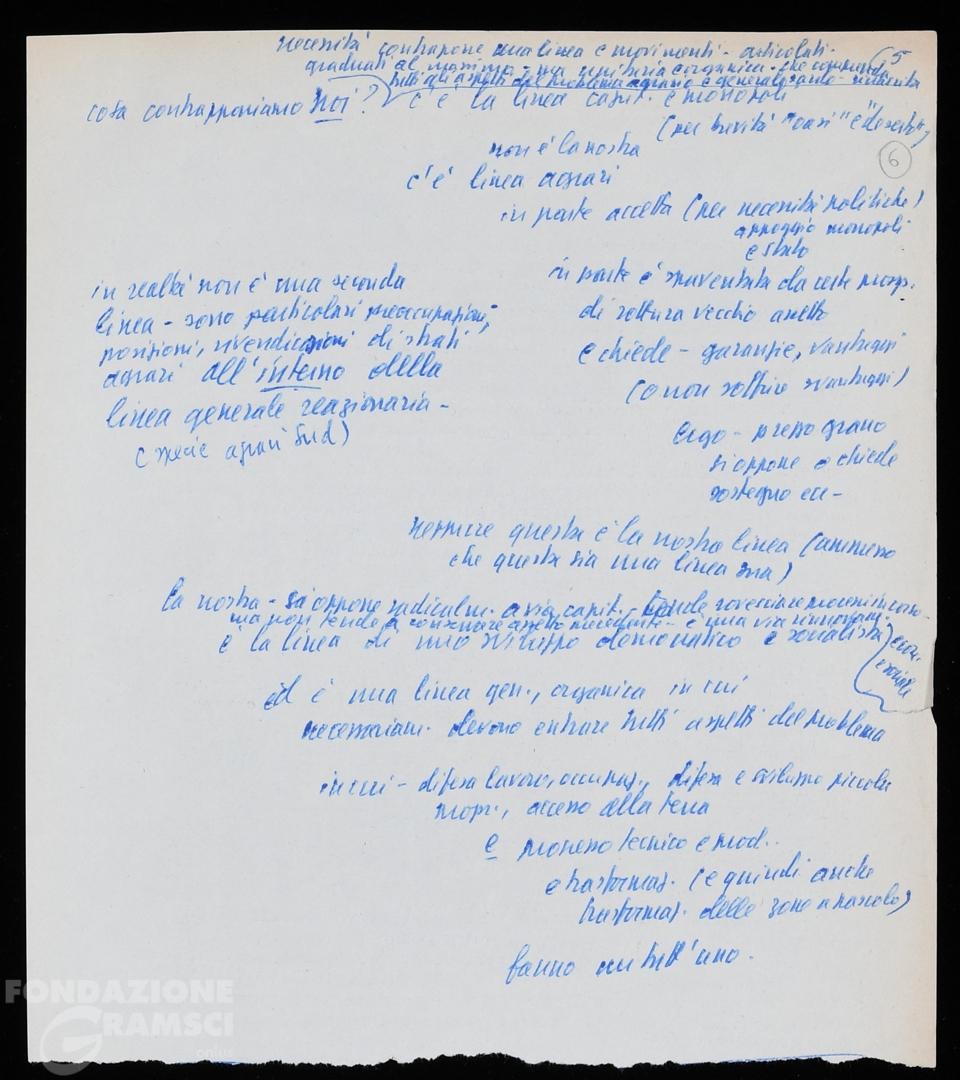 necessità contrapporre una linea e movimenti - articolati -
graduati al massimo - ma unitaria e organica - che comprenda
tutti gli aspetti del problema agrario e generale
(5
6
cosa contrapponiamo noi? c'è la linea capit. e monopoli
(per brevità "oasi" e "deserto")
non è la nostra
c'è linea agrari
in parte accetta (per necessità politiche)
appoggio monopoli
e stato
in parte è spaventata da certe prosp.
di rottura vecchio assetto
e chiede - garanzie, vantaggi
(o non soffrire svantaggi)
Ergo - prezzo grano
si oppone o chiede
sostegno ecc -
in realtà non è una seconda
linea - sono particolari preoccupazioni,
posizioni, rivendicazioni di strati
agrari all'interno della
linea generale reazionaria -
(specie agrari Sud)
neppure questa è la nostra linea (ammesso
che questa sia una linea sua)
la nostra - si oppone radicalm. a via capit. - tende rovesciare processi in corso -
ma non tende a conservare assetto precedente - è una via rinnovam.
è la linea di uno sviluppo democratico e socialista
econ.
e sociale
ed è una linea gen., organica in cui
necessariam. devono entrare tutti aspetti del problema
in cui - difesa lavoro, occupaz., difesa e sviluppo piccola
propr., accesso alla terra
e progresso tecnico e prod..
e trasformaz. (e quindi anche
trasformaz. delle zone a pascolo)
fanno un tutt'uno.
FONDAZIONE
GRAMSCI